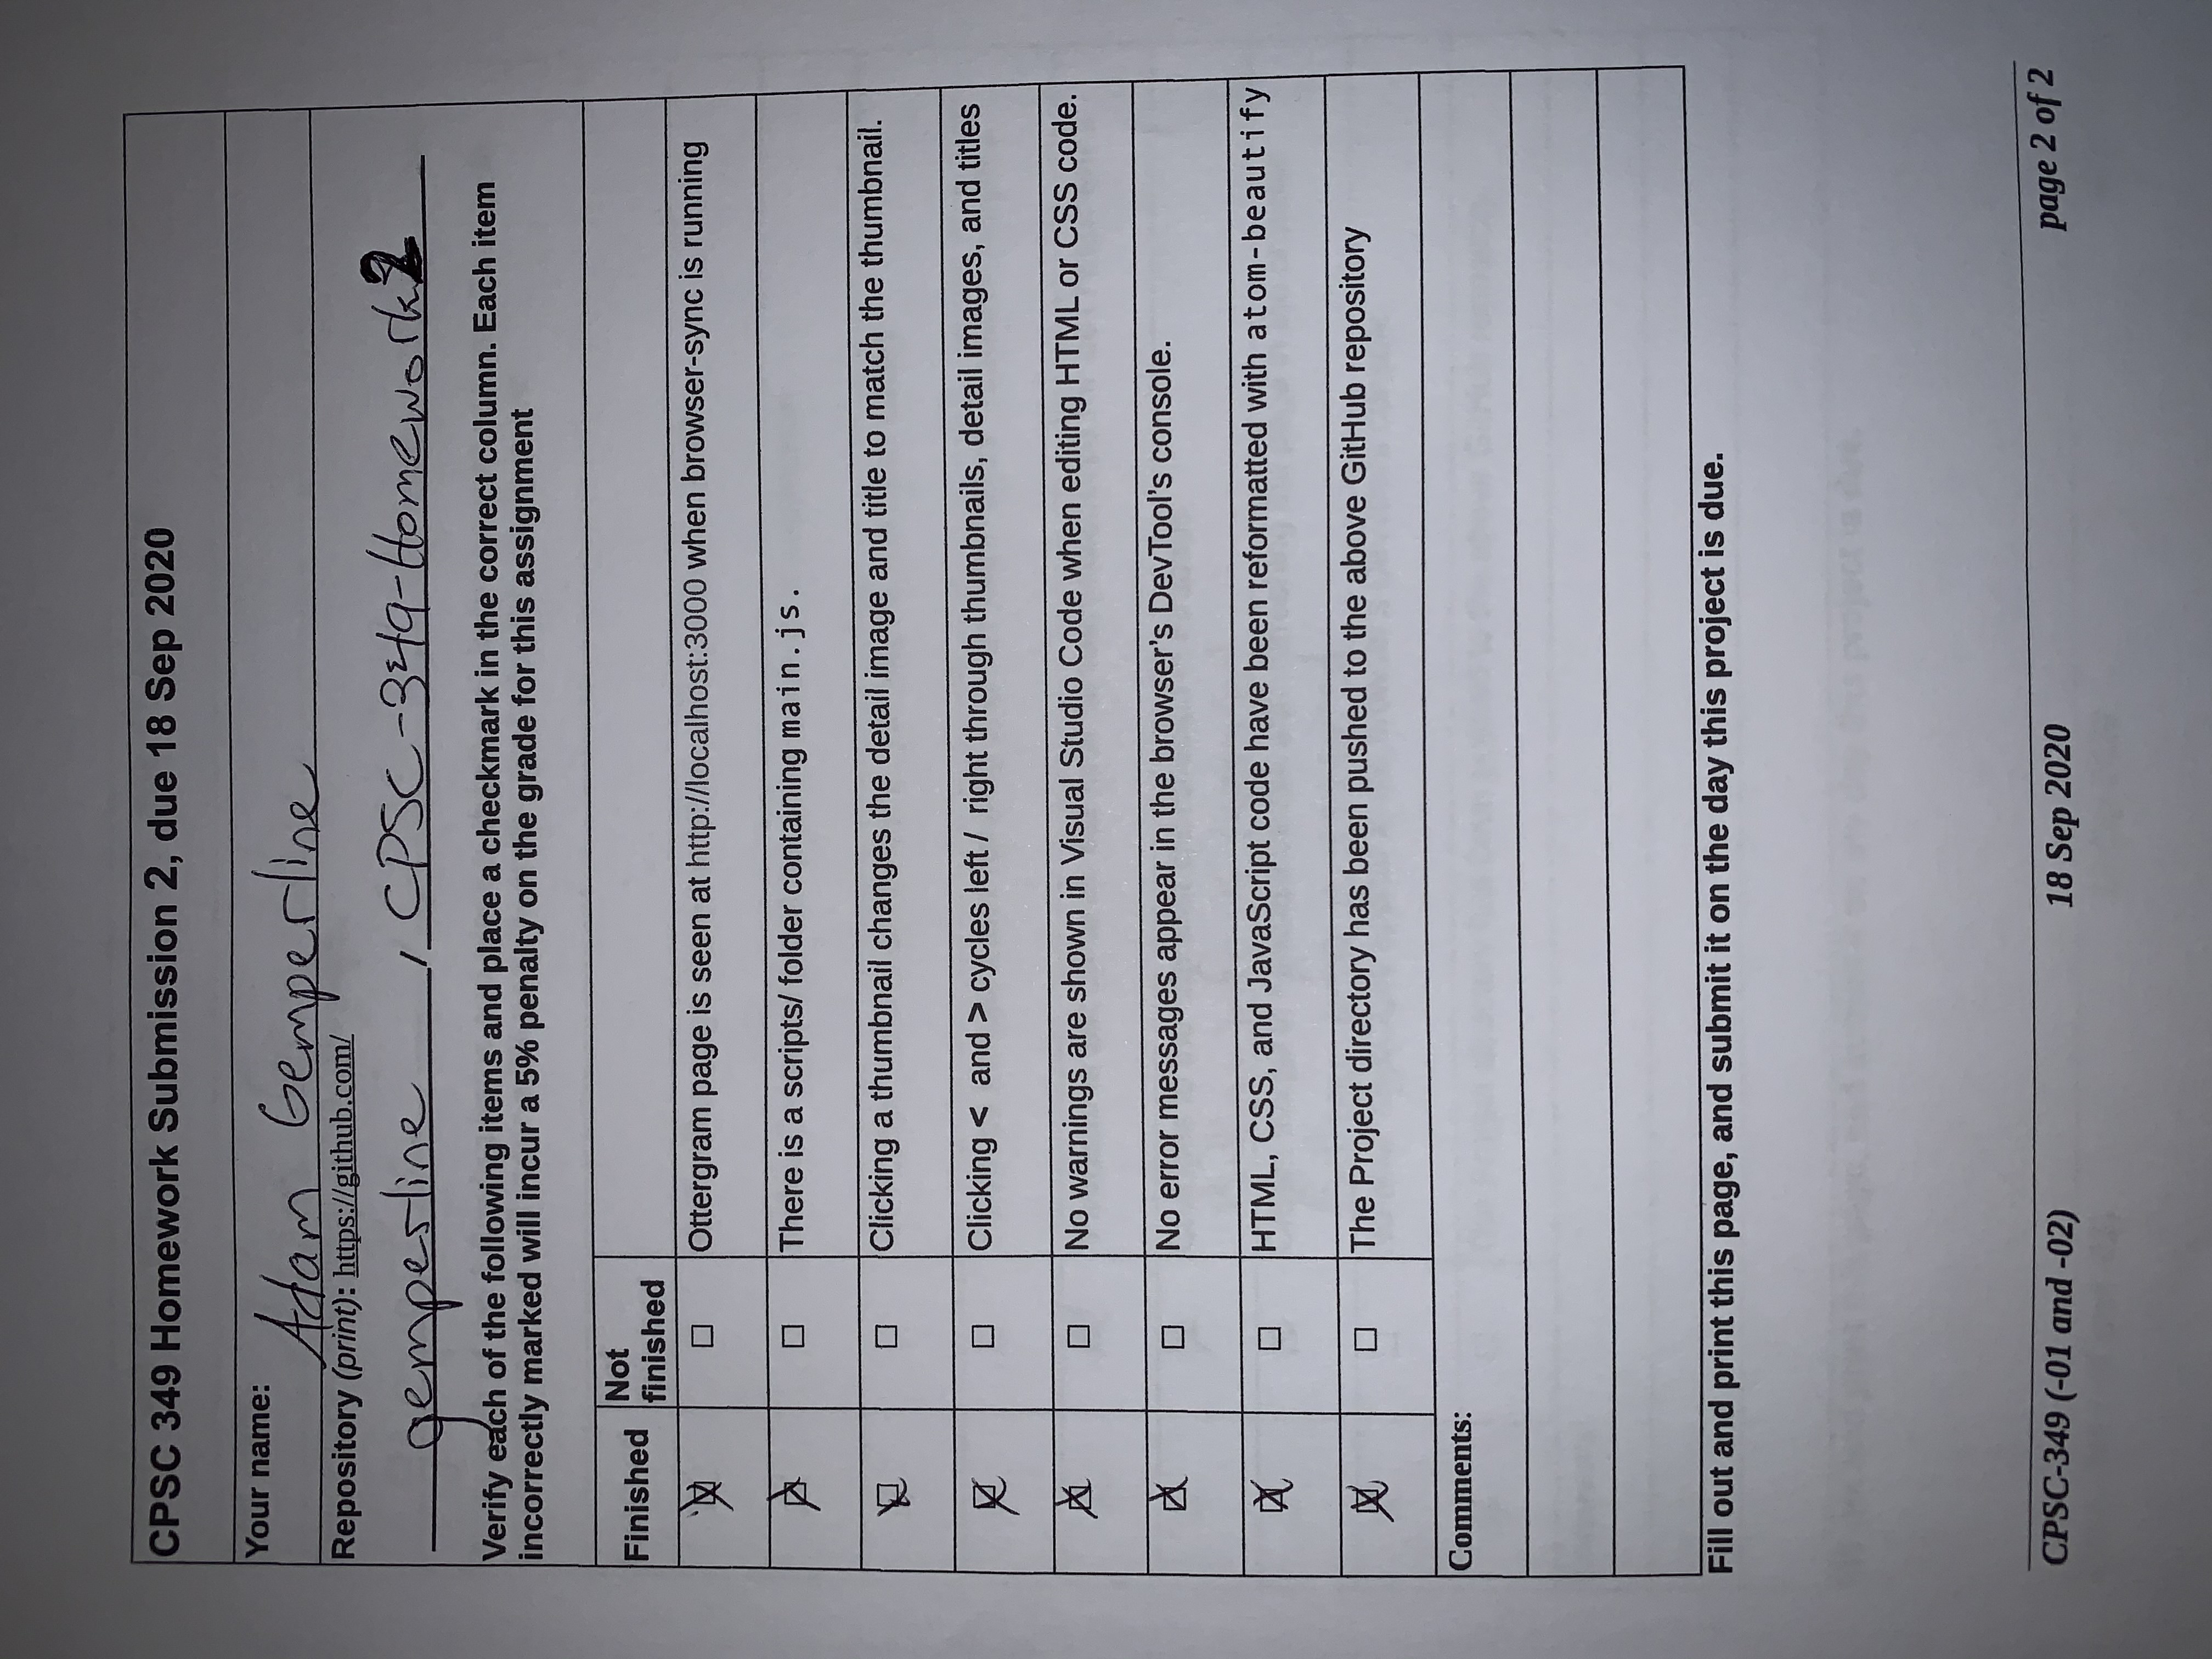 CPSC 349 Homework Submission 2, due 18 Sep 2020
Your name: Adam Gemperline
Repository (print): https://github.com/
gemperline / CPSC-349-Homework2
Verify each of the following items and place a checkmark in the correct column. Each item
incorrectly marked will incur a 5% penalty on the grade for this assignment
Finished
Not
finished
Ottergram page is seen at http://localhost:3000 when browser-sync is running
There is a scripts/ folder containing main.js.
Clicking a thumbnail changes the detail image and title to match the thumbnail.
Clicking < and > cycles left / right through thumbnails, detail images, and titles
No warnings are shown in Visual Studio Code when editing HTML or CSS code.
No error messages appear in the browser's DevTool's console.
HTML, CSS, and JavaScript code have been reformatted with atom-beautify
The Project directory has been pushed to the above GitHub repository
Comments:
Fill out and print this page, and submit it on the day this project is due.
CPSC-349 (-01 and -02) 18 Sep 2020 page 2 of 2